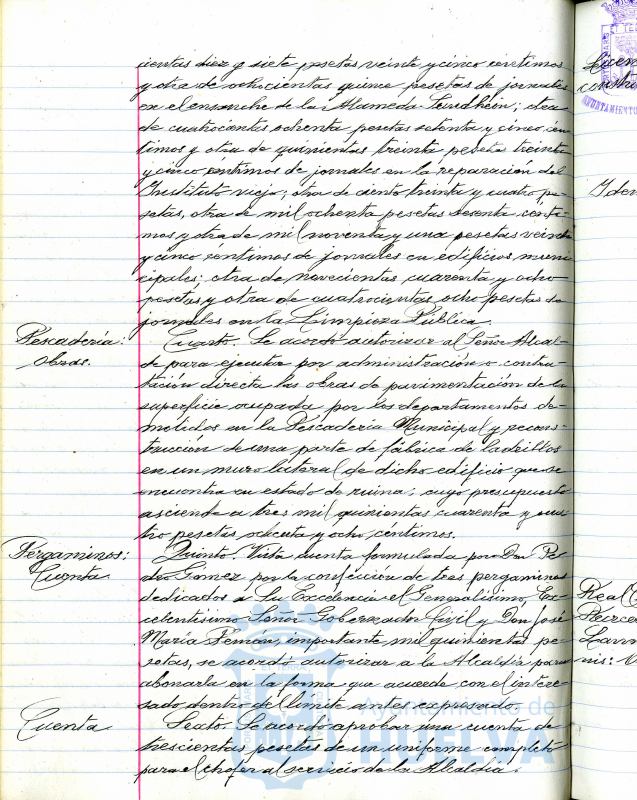 cientas diez y siete pesetas veinte y cinco céntimos
y otra de ochocientas quince pesetas de jornales
en el ensanche de la Alameda Sundhein; otra
de cuatrocientas ochenta pesetas setenta y cinco cén-
timos y otra de quinientas treinta pesetas treinta
y cinco céntimos de jornales en la reparación del
Instituto viejo; otra de ciento treinta y cuatro pe-
setas, otra de mil ochenta pesetas sesenta cénti-
mos y otra de mil noventa y una pesetas veinte
y cinco céntimos de jornales en edificios muni-
cipales; otra de novecientas cuarenta y ocho
pesetas y otra de cuatrocientas ocho pesetas de
jornales en la Limpieza Pública.
Pescadería:
obras.
Cuarto. Se acordó autorizar al Señor Alcal-
de para ejecutar por administración o contra-
tación directa las obras de pavimentación de la
superficie ocupada por los departamentos de-
molidos en la Pescadería Municipal y recons-
trucción de una parte de fábrica de ladrillos
en un muro lateral de dicho edificio que se
encuentra en estado de ruina; cuyo presupuesto
asciende a tres mil quinientas cuarenta y cua-
tro pesetas ochenta y ocho céntimos.
Pergaminos:
Cuenta
Quinto. Vista cuenta formulada por Don Pe-
dro Gómez por la confección de tres pergaminos
dedicados a Su Excelencia el Generalísimo, Ex-
celentísimo Señor Gobernador Civil y Don José
María Pemán, importante mil quinientas pe-
setas, se acordó autorizar a la Alcaldía para
abonarla en la forma que acuerde con el intere-
sado dentro del límite antes expresado.
Cuenta
Sexto. Se acordó aprobar una cuenta de
trescientas pesetas de un uniforme completo
para el chofer al servicio de la Alcaldía.
Ayuntamiento de
HUELVA
Licen
constru
AYUNTAMIENTO
Iden
Real C